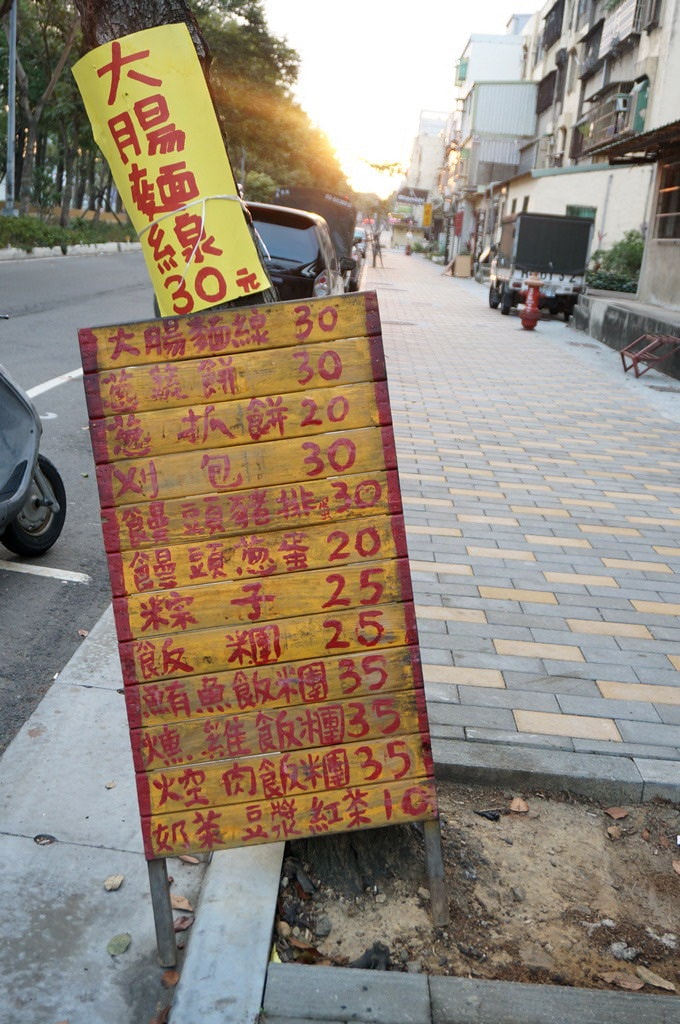 大腸麵線
30元
大腸麵線 30
蔥蔬餅 30
蔥抓餅 20
刈包 30
饅頭豬排蛋 30
饅頭蔥蛋 20
粽子 25
飯糰 25
鮪魚飯糰 35
燻雞飯糰 35
焢肉飯糰 35
奶茶 豆漿 紅茶 10